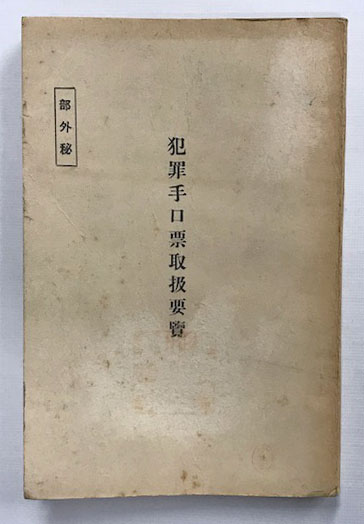 犯罪手口票取扱要覽
部外秘